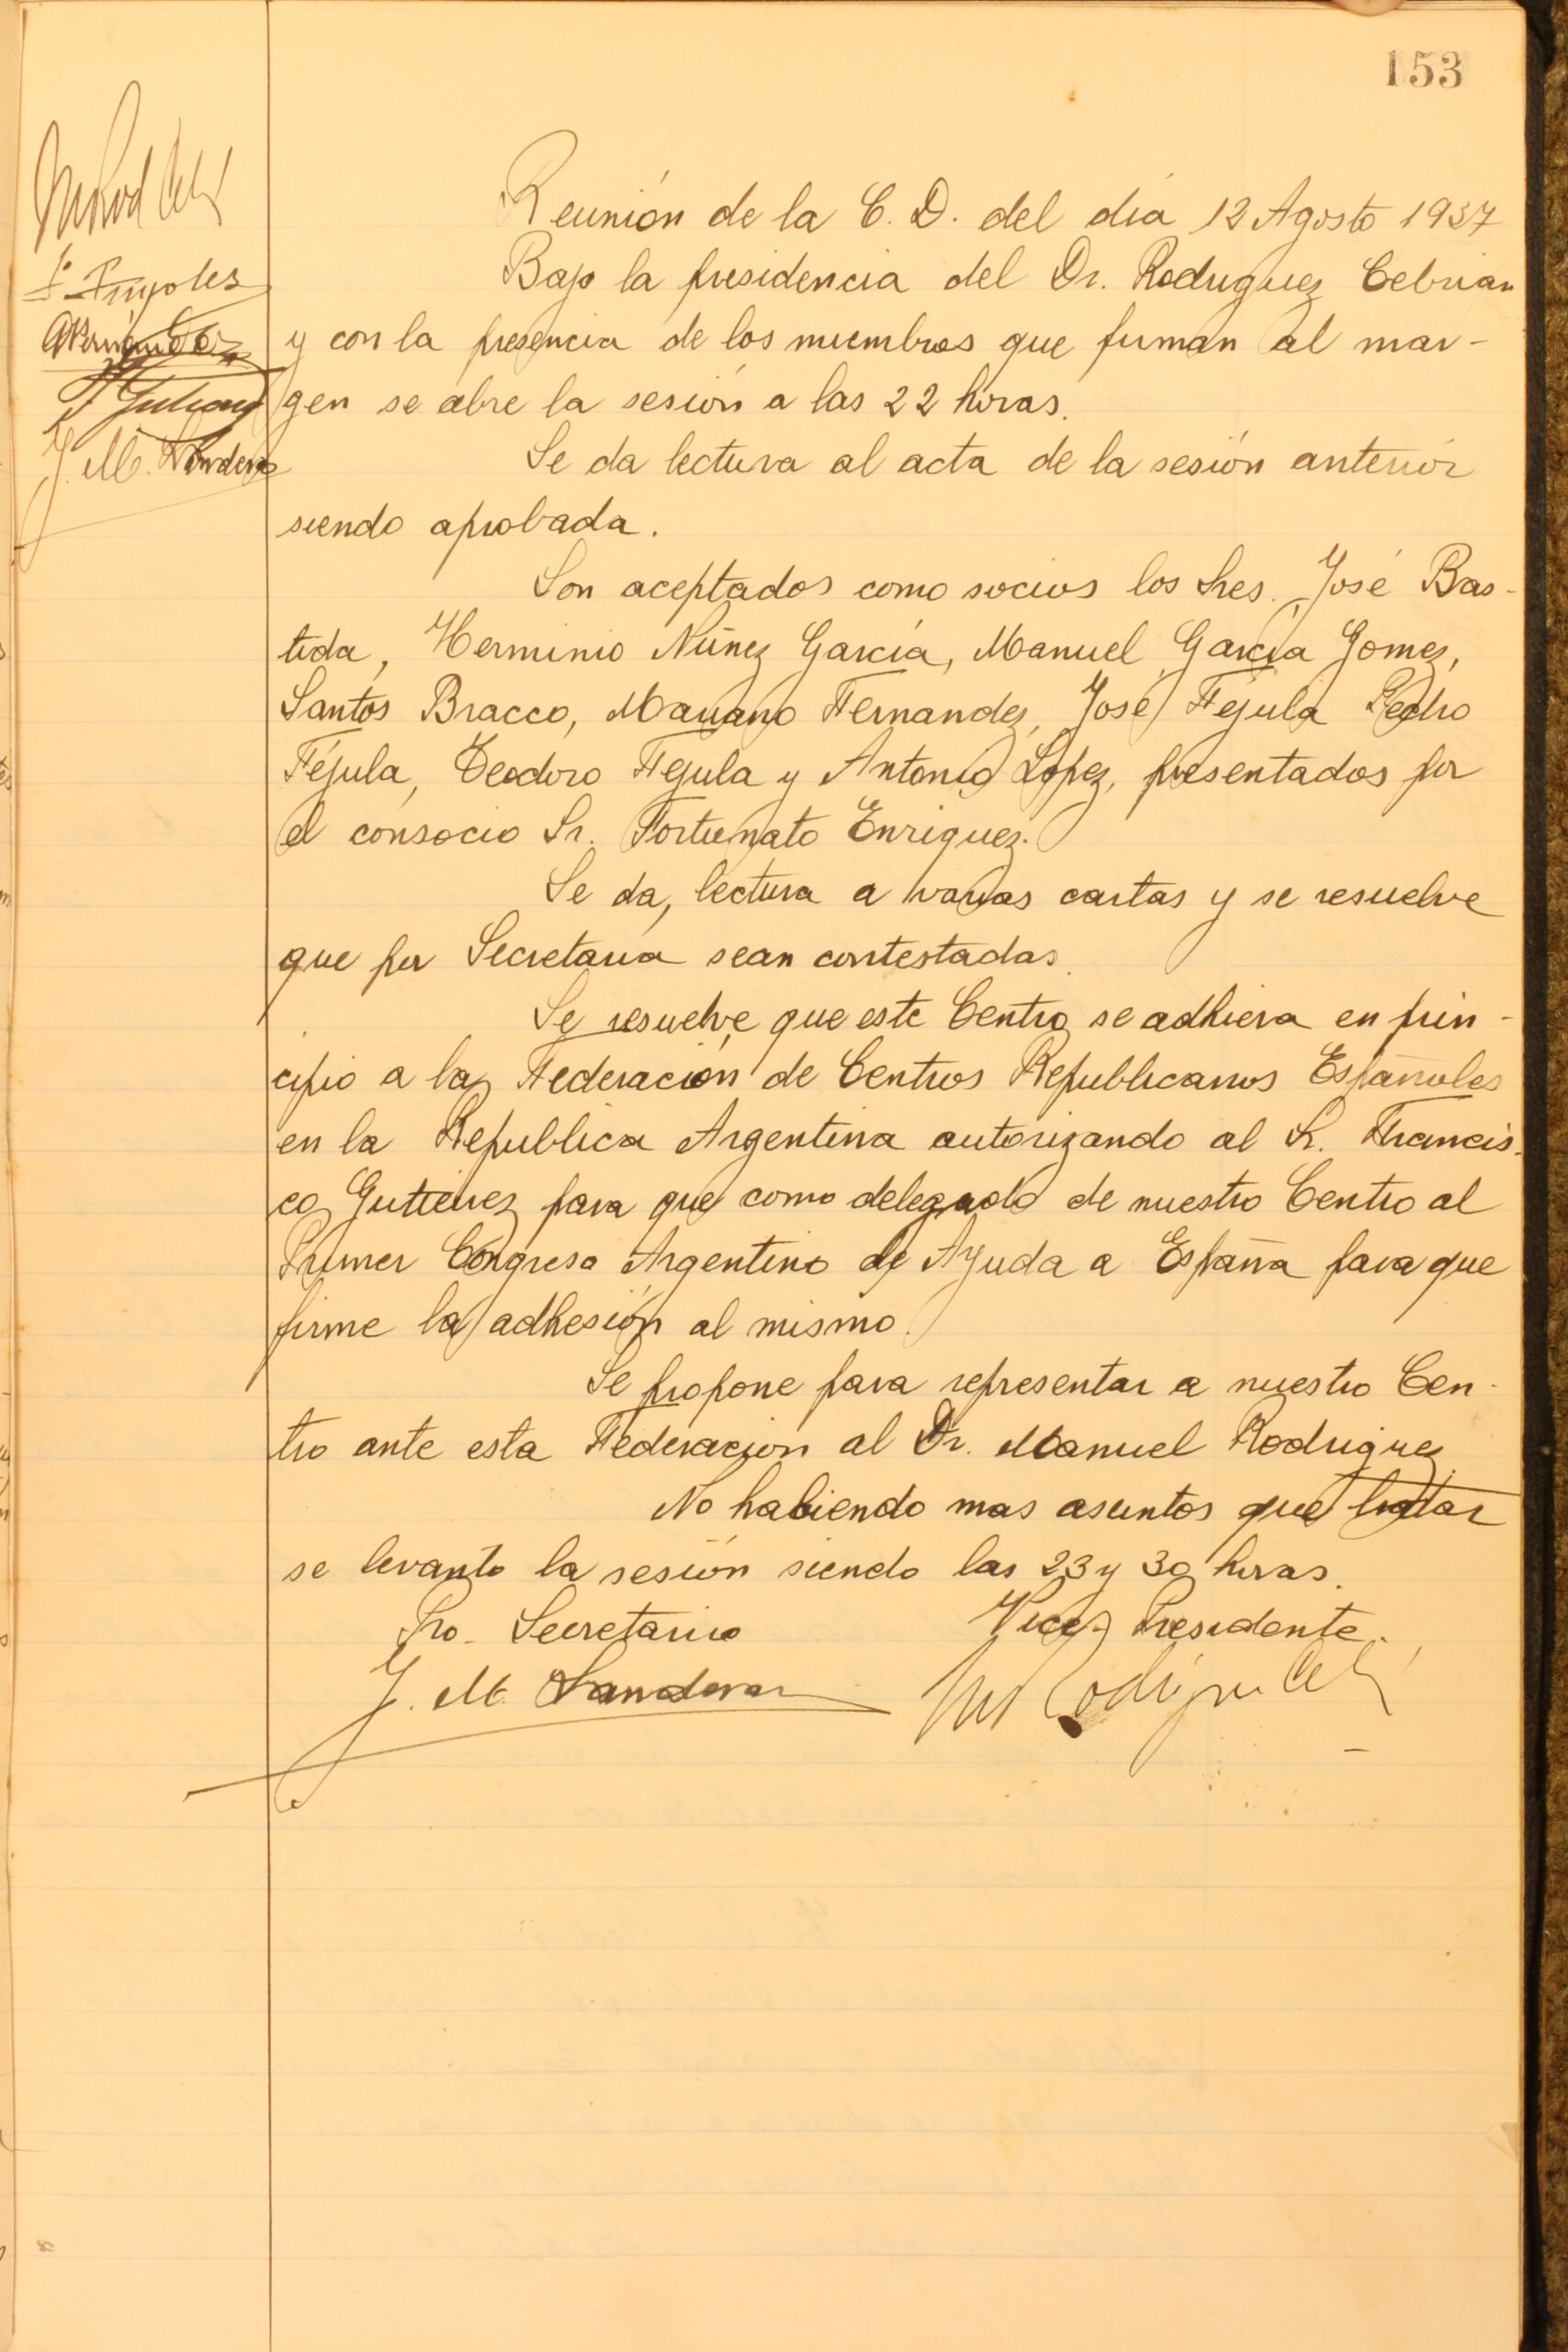 153
Reunión de la C. D. del día 12 Agosto 1937
Bajo la presidencia del Dr. Rodriguez Cebrian
y con la presencia de los miembros que firman al mar-
gen se abre la sesión a las 22 horas.
J. M. Landera
Se da lectura al acta de la sesión anterior
siendo aprobada.
Son aceptados como socios los Sres. José Bas-
tida, Herminio Núñez García, Manuel García Gomez,
Santos Bracco, Mariano Fernandez, José Féjula Pedro
Féjula, Teodoro Fejula y Antonio López, presentados por
el consocio Sr. Fortunato Enriquez.
Se da, lectura a varias cartas y se resuelve
que por Secretaria sean contestadas.
Se resuelve, que este Centro se adhiera en prin-
cipio a la Federación de Centros Republicanos Españoles
en la Republica Argentina autorizando al Sr. Francis-
co Gutierrez para que como delegado de nuestro Centro al
Primer Congreso Argentino de Ayuda a España para que
firme la adhesión al mismo.
Se propone para representar a nuestro Cen-
tro ante esta Federacion al Dr. Manuel Rodriguez
No habiendo mas asuntos que tratar
se levanto la sesión siendo las 23 y 30 horas.
Pro-Secretario Vice-Presidente.
J. M. Landera